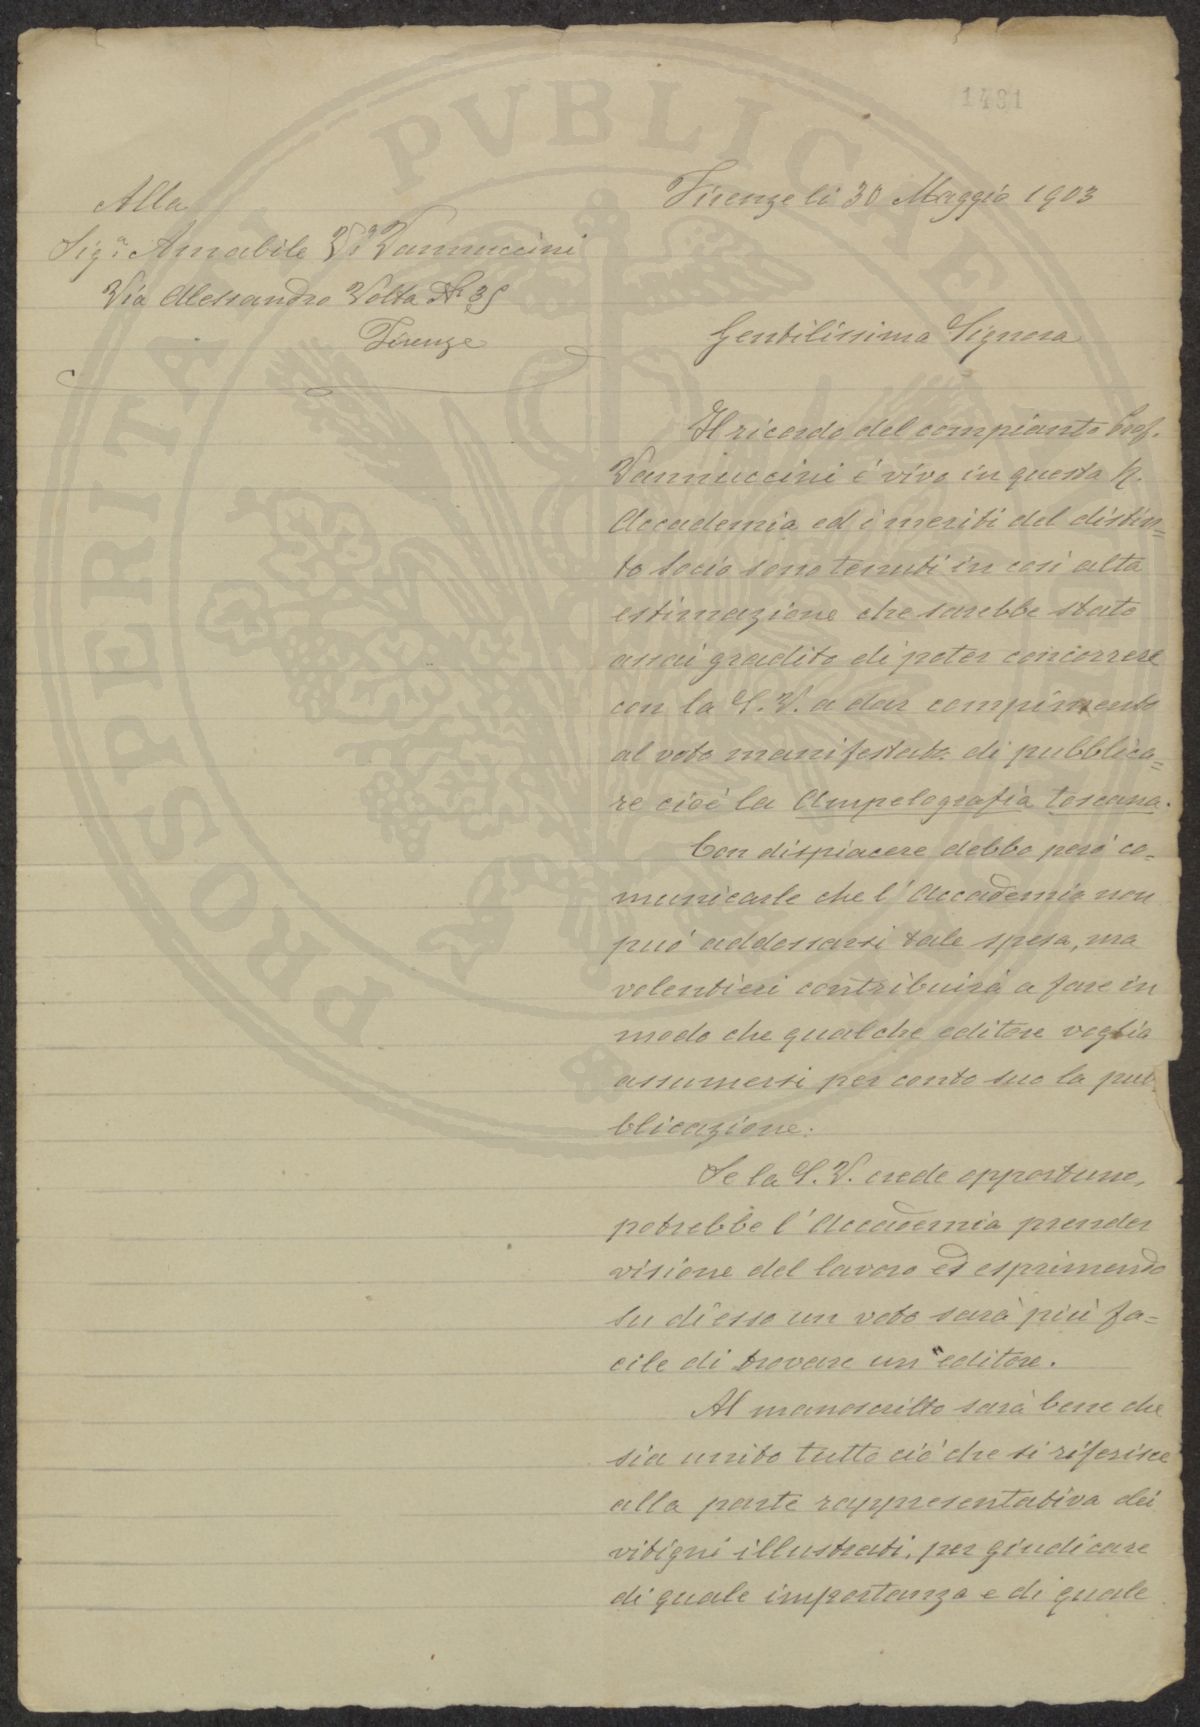 1491
PVBLICAE
PROSPERITATI
Firenze li 30 Maggio 1903
Alla
Sig.ª Amabile V.ª Vannuccini
Via Alessandro Volta Nº
Firenze
Gentilissima Signora
Il ricordo del compianto Prof.
Vannuccini è vivo in questa R.
Accademia ed i meriti del distin=
to socio sono tenuti in così alta
estimazione che sarebbe stato
assai gradito di poter concorrere
con la S. V. a dar compimento
al voto manifestato di pubblica=
re cioè la Ampelografia toscana.
Con dispiacere debbo però co=
municarle che l'Accademia non
può addossarsi tale spesa, ma
volentieri contribuirà a fare in
modo che qualche editore voglia
assumersi per conto suo la pub
blicazione.
Se la S. V. crede opportuno,
potrebbe l'Accademia prender
visione del lavoro ed esprimendo
su di esso un voto sarà più fa=
cile di trovare un editore.
Al manoscritto sarà bene che
sia unito tutto ciò che si riferisce
alla parte rappresentativa dei
vitigni illustrati, per giudicare
di quale importanza e di quale